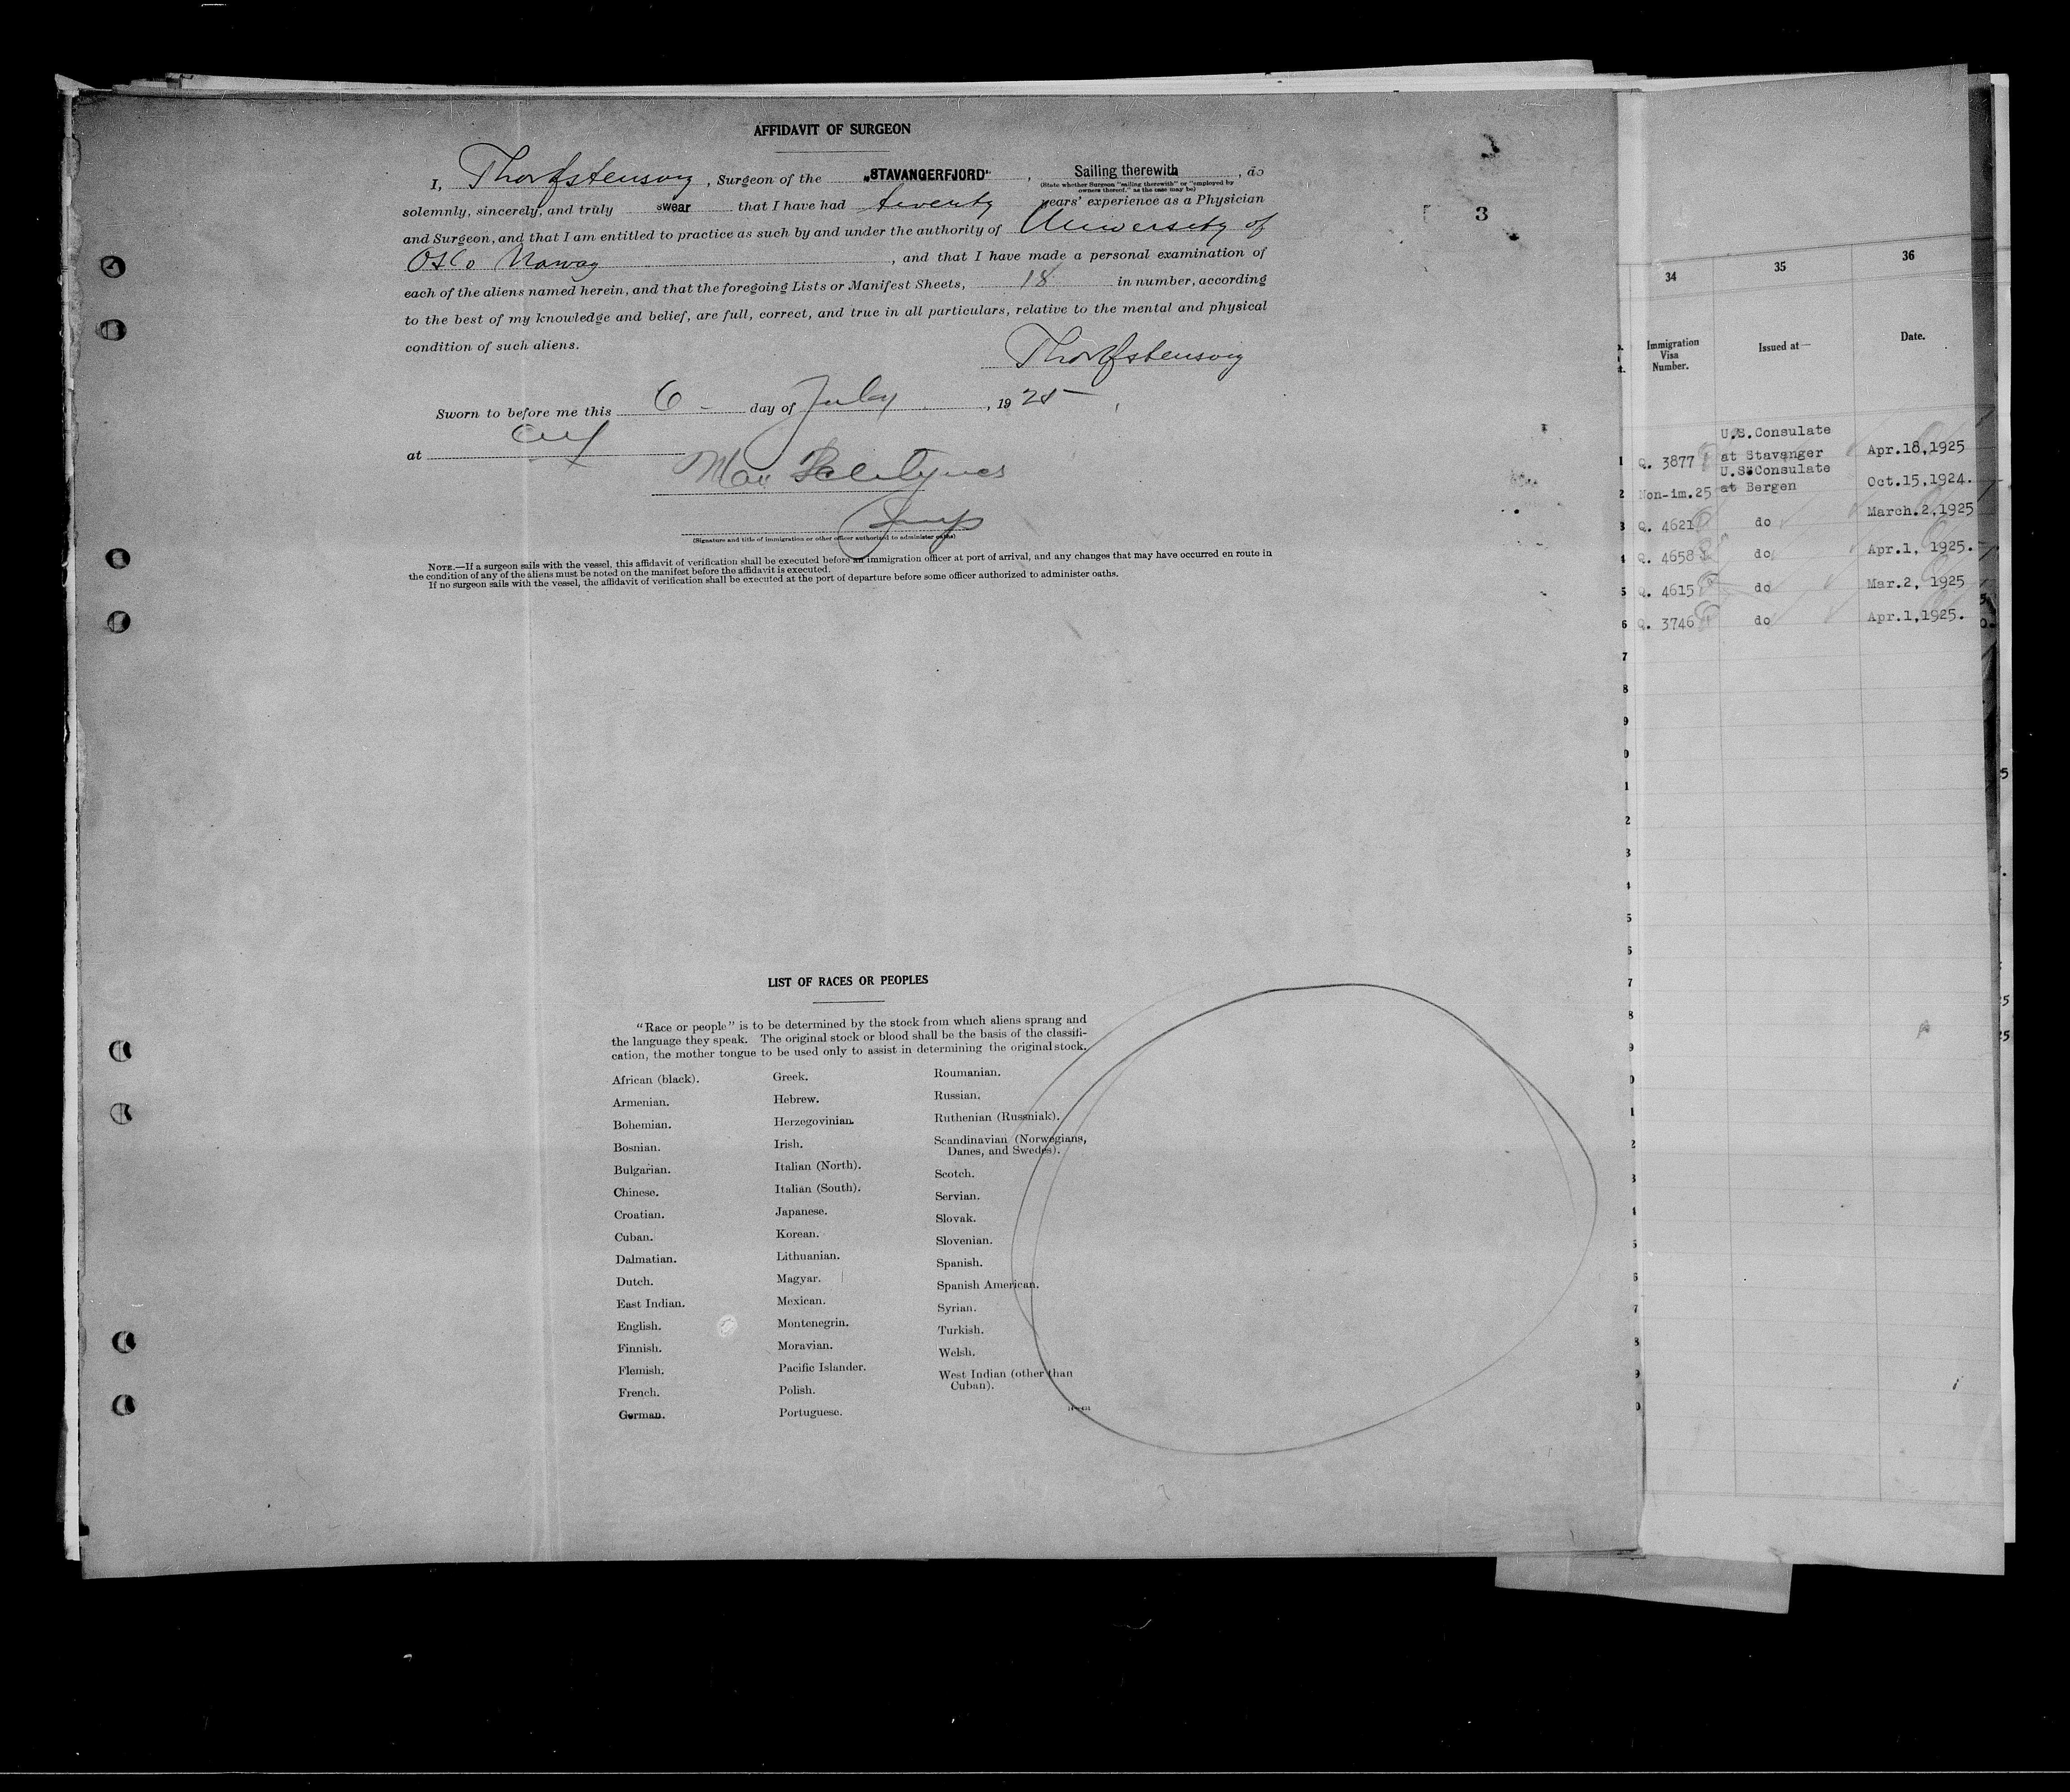 AFFIDAVIT OF SURGEON
I, , Surgeon of the "STAVANGERFJORD", Sailing therewith, do
(State whether Surgeon "sailing therewith" or "employed by
owners thereof," as the case may be)
solemnly, sincerely, and truly swear that I have had twenty years' experience as a Physician
and Surgeon, and that I am entitled to practice as such by and under the authority of University of
Oslo Norway, and that I have made a personal examination of
each of the aliens named herein, and that the foregoing Lists or Manifest Sheets, 18 in number, according
to the best of my knowledge and belief, are full, correct, and true in all particulars, relative to the mental and physical
condition of such aliens.
Sworn to before me this 6 - day of July, 1925
at
(Signature and title of immigration or other officer authorized to administer oaths)
NOTE.—If a surgeon sails with the vessel, this affidavit of verification shall be executed before an immigration officer at port of arrival, and any changes that may have occurred en route in
the condition of any of the aliens must be noted on the manifest before the affidavit is executed.
If no surgeon sails with the vessel, the affidavit of verification shall be executed at the port of departure before some officer authorized to administer oaths.
3
LIST OF RACES OR PEOPLES
"Race or people" is to be determined by the stock from which aliens sprang and
the language they speak. The original stock or blood shall be the basis of the classifi-
cation, the mother tongue to be used only to assist in determining the original stock.
African (black).
Armenian.
Bohemian.
Bosnian.
Bulgarian.
Chinese.
Croatian.
Cuban.
Dalmatian.
Dutch.
East Indian.
English.
Finnish.
Flemish.
French.
German.
Greek.
Hebrew.
Herzegovinian.
Irish.
Italian (North).
Italian (South).
Japanese.
Korean.
Lithuanian.
Magyar.
Mexican.
Montenegrin.
Moravian.
Pacific Islander.
Polish.
Portuguese.
Roumanian.
Russian.
Ruthenian (Russniak).
Scandinavian (Norwegians,
Danes, and Swedes).
Scotch.
Servian.
Slovak.
Slovenian.
Spanish.
Spanish American.
Syrian.
Turkish.
Welsh.
West Indian (other than
Cuban).
34 35 36
Immigration
Visa
Number.
Issued at—
Date.
1 Q. 3877 U.S.Consulate
at Stavanger Apr.18,1925
2 Non-im.25 U.S.Consulate
at Bergen Oct.15,1924.
3 Q. 4621 do March.2,1925
4 Q. 4658 do Apr.1, 1925.
5 Q. 4615 do Mar.2, 1925
6 Q. 3746 do Apr.1,1925.
7
8
9
0
1
2
3
4
5
6
7
8
9
0
1
2
3
4
5
6
7
8
9
0